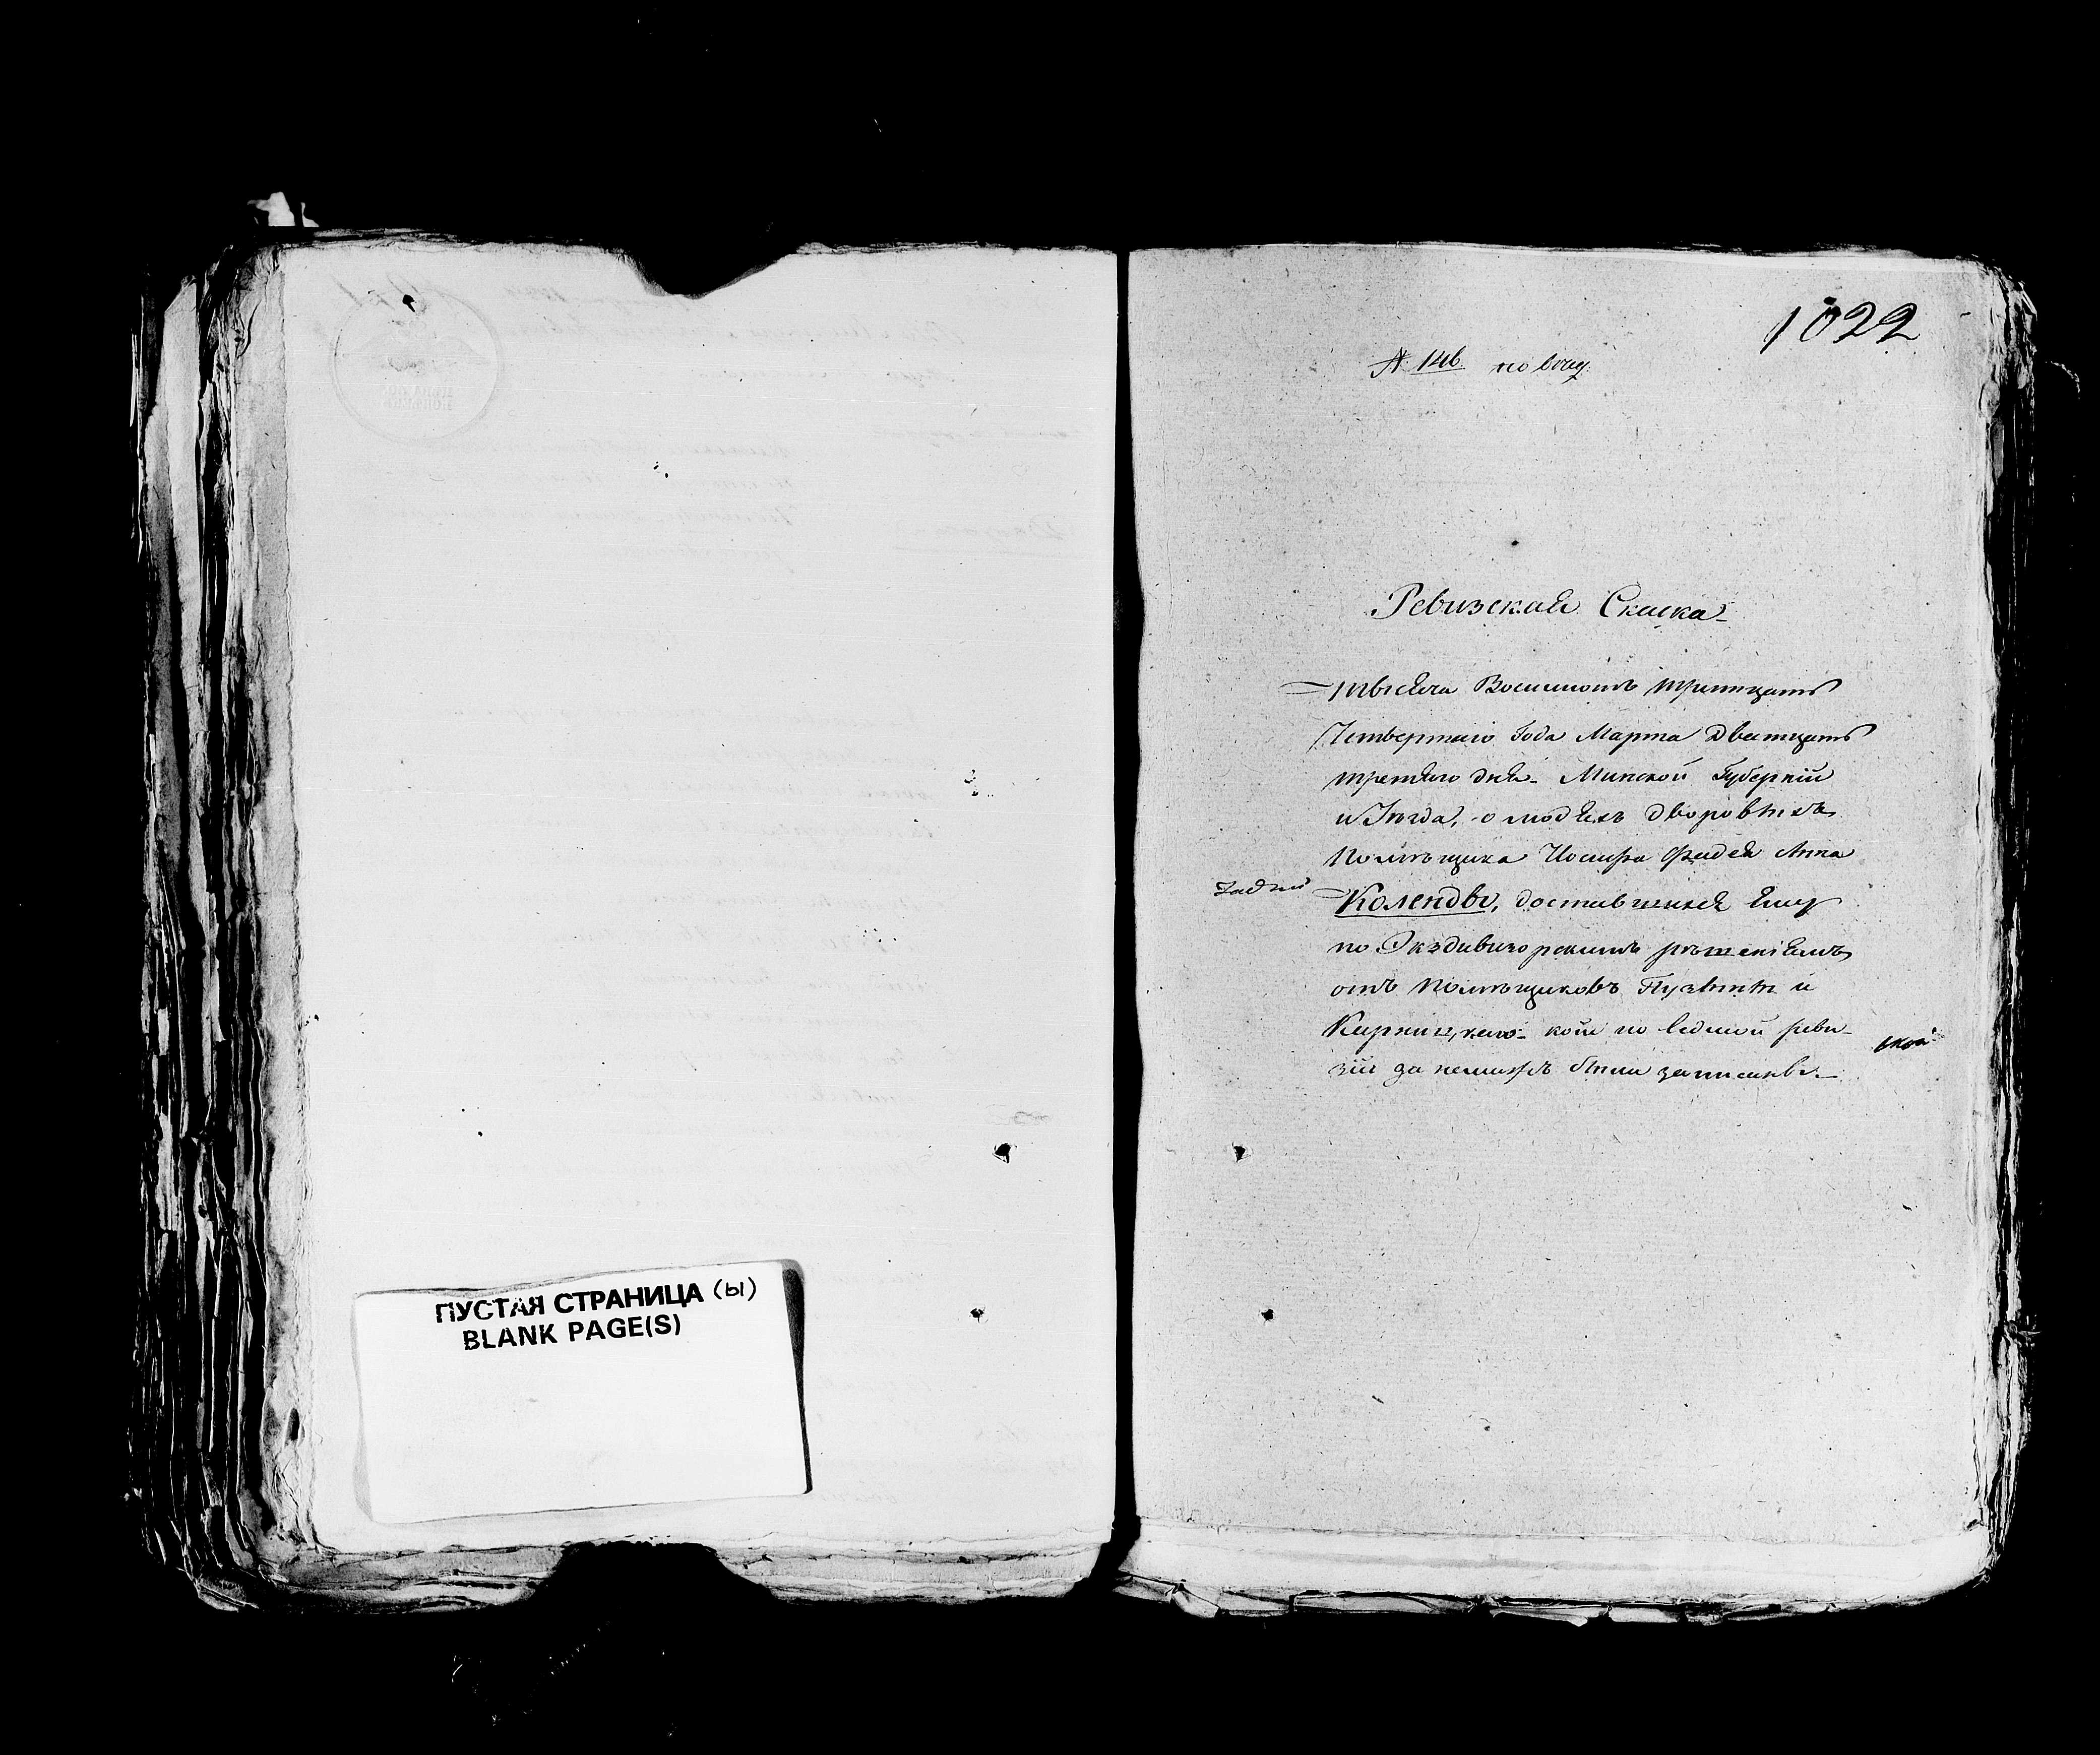 ПУСТАЯ СТРАНИЦА (ы)
BLANK PAGE(S)
1022
№ 146 по
Ревизская Скаска
Тысяча Восимьсотъ тритцать
Четвертаго года Марта Дватцать
третяго дня Минской Губерніи
и Уезда, о людяхъ дворовыхъ
Помѣщика Иосифа Фадея
Коленды, доставшихся ему
по Экздивизорскимъ рѣшеніямъ
отъ Помѣщиковъ Пузыны и
кои по седмой реви-
зіи за ними были записаны